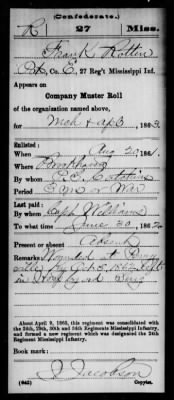 (Confederate.)
R 27 Miss.
Frank Rotten
Pvt, Co. E, 27 Reg't Mississippi Inf.
Appears on
Company Muster Roll
of the organization named above,
for Mch & Apl, 1863.
Enlisted:
When Aug 20, 1861.
Where
By whom
Period 3 yrs or War
Last paid:
By whom Capt
To what time June 30, 1862.
Present or absent Absent
Remarks: Wounded at
in
About April 9, 1865, this regiment was consolidated with
the 24th, 29th, 30th and 34th Regiments Mississippi Infantry,
and formed a new regiment which was designated the 24th
Regiment Mississippi Infantry.
Book mark:
J. Jacobson
(642) Copyist.